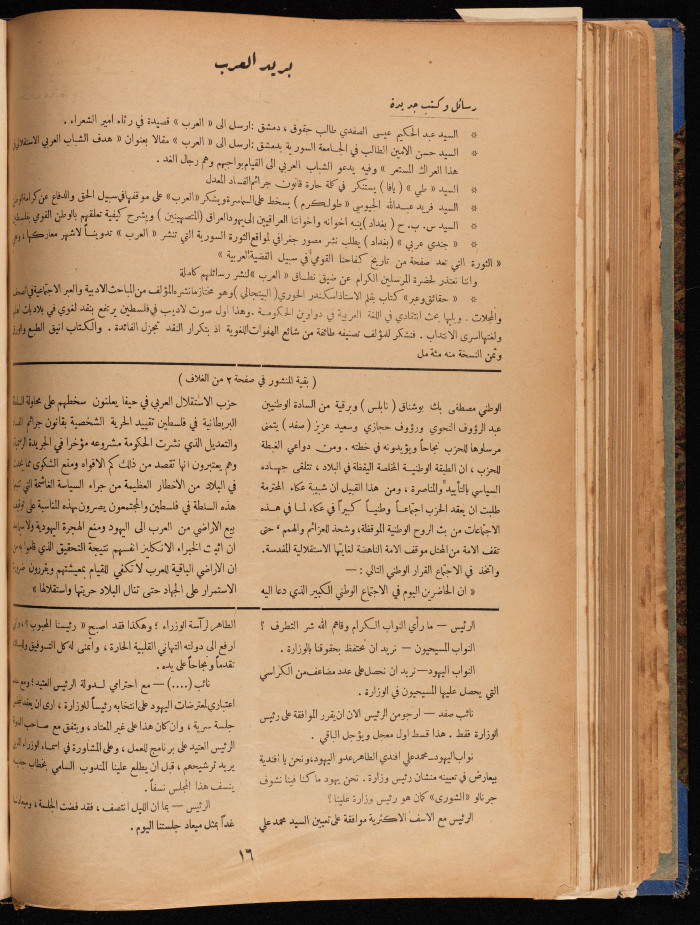 بريد العرب
رسائل وكتب جديدة
* السيد عبد الحكيم عيسى الصفدي طالب حقوق ، دمشق : ارسل الى « العرب » قصيدة في رثاء امير الشعراء .
* السيد حسن الامين الطالب في الجامعة السورية بدمشق : ارسل الى « العرب » مقالا بعنوان « هدف الشباب العربي الاستقلالي في
هذا العراك المستعر » وفيه يدعو الشباب العربي الى القيام بواجبهم وهم رجال الغد .
* السيد « طي » ( يافا ) يستنكر في كلمة حارة قانون جرائم الفساد المعدل
* السيد فريد عبدالله الجيوسي « طولكرم ) يسخط على السماسرة ويشكر «العرب» على موقفها في سبيل الحق والدفاع عن كرامة
* السيد س . ب . ح ( بغداد ) ينبه اخوانه واخواننا العراقيين الى يهود العراق ( المتصهينين ) ويشرح كيفية تعلقهم بالوطن القومي بفلسطين
* « جندي عربي » ( بغداد ) يطلب نشر مصور جغرافي لمواقع الثورة السورية التي تنشر « العرب » تدويناً لاشهر معاركها ،
« الثورة التي تعد صفحة من تاريخ كفاحنا القومي في سبيل القضية العربية »
واننا نعتذر لحضرة المرسلين الكرام عن ضيق نطاق « العرب » لنشر رسائلهم كاملة
* « حقائق وعبر » كتاب بقلم الاستاذ اسكندر الخوري ( البيتجالي ) وهو مختار مما نشره المؤلف من المباحث الادبية والعبر الاجتماعية في الصحف
والمجلات . ويليها بحث انتقادي في اللغة العربية في دواوين الحكومة . وهذا اول صوت لاديب في فلسطين يرتفع بنقد لغوي في بلاد بات اهلها
ولغتها اسرى الانتداب . فنشكر للمؤلف تصنيفه طائفة من شائع الهفوات اللغوية اذ بتكرار النقد تجزل الفائدة . والكتاب انيق الطبع والورق
وثمن النسخة منه مئة مل
( بقية المنشور في صفحة ٢ من الغلاف )
الوطني مصطفى بك بوشناق ( نابلس ) وبرقية من السادة الوطنيين
عبد الرؤوف النحوي ورؤوف حجازي وسعيد عزيز ( صفد ) يتمنى
مرسلوها للحزب نجاحاً ويؤيدونه في خطته . ومن دواعي الغبطة
للحزب ، ان الطبقة الوطنية المخلصة اليقظة في البلاد ، تتلقى جهاده
السياسي بالتأييد والمناصرة ، ومن هذا القبيل ان شبيبة عكاء المحترمة
طلبت ان يعقد الحزب اجتماعاً وطنياً كبيراً في عكاء لما في هذه
الاجتماعات من بث الروح الوطنية الموقظة ، وشحذ للعزائم والهمم ، حتى
تقف الامة من المحتل موقف الامة الناهضة لغايتها الاستقلالية المقدسة.
واتخذ في الاجتماع القرار الوطني التالي : —
« ان الحاضرين اليوم في الاجتماع الوطني الكبير الذي دعا اليه
حزب الاستقلال العربي في حيفا يعلنون سخطهم على محاولة السلطة
البريطانية في فلسطين تقييد الحرية الشخصية بقانون جرائم الفساد
والتعديل الذي نشرت الحكومة مشروعه مؤخرا في الجريدة الرسمية
وهم يعتبرون انها تقصد من ذلك كم الافواه ومنع الشكوى مما يحدث
في البلاد من الاخطار العظيمة من جراء السياسة الغاشمة التي
هذه السلطة في فلسطين والمجتمعون يصرون بهذه المناسبة على
بيع الاراضي من العرب الى اليهود ومنع الهجرة اليهودية
ان اثبت الخبراء الانكليز انفسهم نتيجة التحقيق الذي قاموا به
ان الاراضي الباقية للعرب لا تكفي للقيام بمعيشتهم ويقررون ضرورة
الاستمرار على الجهاد حتى تنال البلاد حريتها واستقلالها »
الرئيس — ما رأي النواب الكرام وقاهم الله شر التطرف ؟
النواب المسيحيون — نريد ان نحتفظ بحقوقنا بالوزارة .
النواب اليهود — نريد ان نحصل على عدد مضاعف من الكراسي
التي يحصل عليها المسيحيون في الوزارة .
نائب صفد — ارجو من الرئيس الان ان يقرر الموافقة على رئيس
الوزارة فقط . هذا قسط اول معجل ويؤجل الباقي .
نواب اليهود — محمد علي افندي الطاهر عدو اليهود ، ونحن يا افندية
بيعارض في تعيينه منشان رئيس وزارة . نحن يهود ما كنا فينا نشوف
جرنالو «الشورى» كمان هو رئيس وزارة علينا ؟
الرئيس مع الاسف الاكثرية موافقة على تعيين السيد محمد علي
الطاهر لرآسة الوزراء ؛ وهكذا فقد اصبح « رئيسنا المحبوب »
ارفع الى دولته التهاني القلبية الحارة ، واتمنى له كل التوفيق
تقدماً ونجاحاً على يده .
نائب (....) — مع احترامي لدولة الرئيس العتيد ؛ ومع
اعتباري لمعترضات اليهود على انتخابه رئيساً للوزارة ، ارى ان يعقد
جلسة سرية ، وان كان هذا على غير المعتاد ، ويتفق مع صاحب الدولة
الرئيس العتيد على برنامج للعمل ، وعلى المشاورة في اسماء الوزراء الذين
يريد ترشيحهم ، قبل ان يطلع علينا المندوب السامي بخطاب جديد
ينسف هذا المجلس نسفاً .
الرئيس — بما ان الليل انتصف ، فقد فضت الجلسة ، وميعادنا
غداً بمثل ميعاد جلستنا اليوم .
١٦